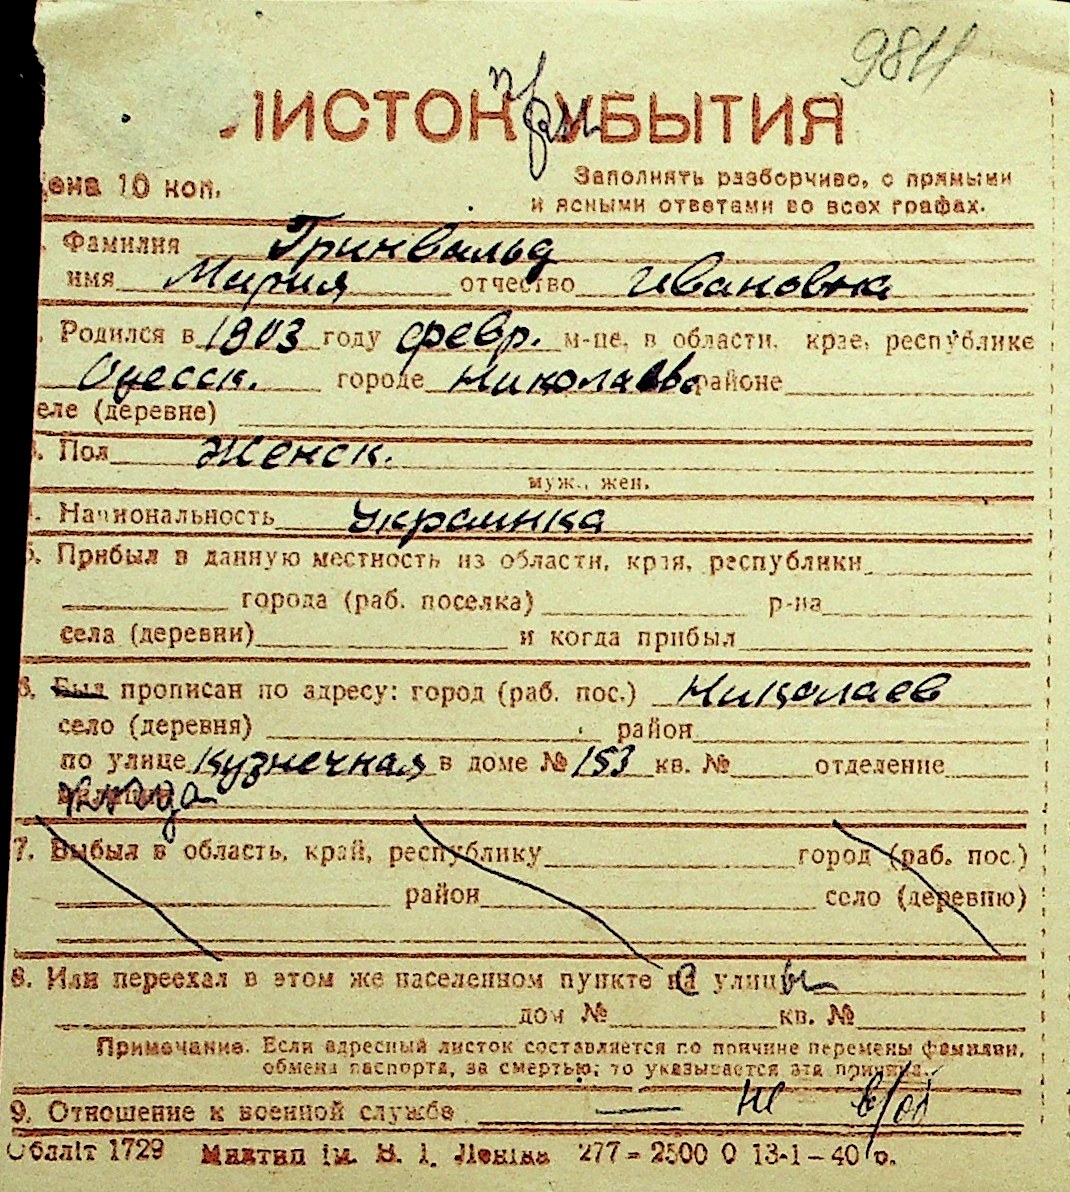 9811
ЛИСТОК при УБЫТИЯ
Цена 10 коп.
Заполнять разборчиво, с прямыми
и ясными ответами во всех графах.
Фамилия Гринвальд
имя Мария отчество Ивановна
Родился в 1903 году февр. м-це, в области, крае, республике
Одесск. городе Николаеве районе
селе (деревне)
3. Пол Женск.
муж., жен.
4. Национальность Украинка
5. Прибыл в данную местность из области, края, республики
города (раб. поселка) р-на
села (деревни) и когда прибыл
6. Был прописан по адресу: город (раб. пос.) Николаев
село (деревня) район
по улице Кузнечная в доме № 153 кв. № отделение
7. Выбыл в область, край, республику город (раб. пос.)
район село (деревню)
8. Или переехал в этом же населенном пункте с улицы
дом № кв. №
Примечание. Если адресный листок составляется по причине перемены фамилии,
обмена паспорта, за смертью, то указывается эта причина.
9. Отношение к военной службе — не в/об
Обллiт 1729 Миктип iм. В. I. Ленiна 277 – 2500 0 13-1 – 40 р.